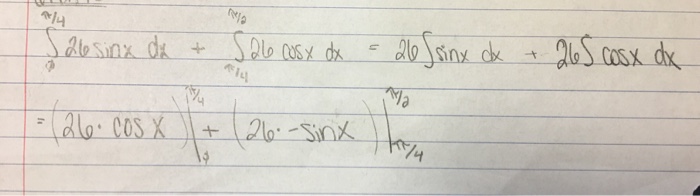 ∫ 26 sinx dx + ∫ 26 cosx dx = 26 ∫ sinx dx + 26 ∫ cosx dx
= (26 · cos x) |^{π/4} + (26 · -sinx) |_{π/4}^{π/2}